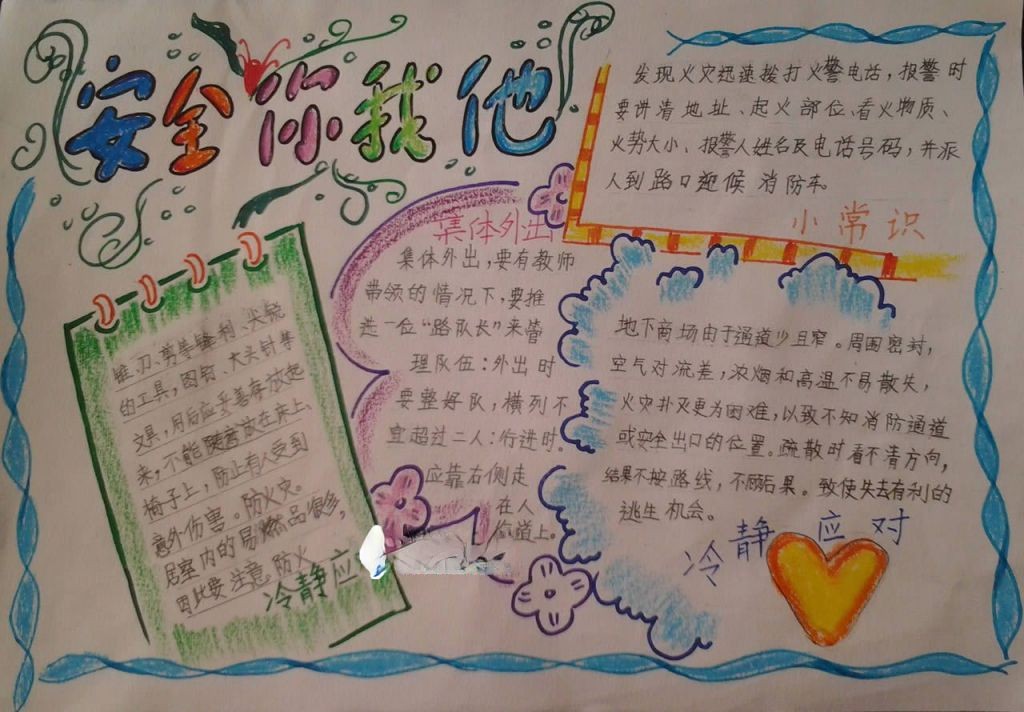 安全你我他
发现火灾迅速拨打火警电话，报警时
要讲清地址、起火部位、看火物质、
火势大小、报警人姓名及电话号码，并派
人到路口迎候消防车。
小常识
集体外出
集体外出，要有教师
带领的情况下，要推
选一位“路队长”来管
理队伍：外出时
要整好队，横列不
宜超过二人：行进时.
应靠右侧走
在人
道上。
锥、刀、剪等锋利、尖锐
的工具，图钉、大头针等
文具，用后应妥善存放起
来，不能随意放在床上、
椅子上，防止有人受到
意外伤害。防火灾。
居室内的易燃品很多，
因此要注意防火
冷静应
地下商场由于通道少且窄。周围密封，
空气对流差，浓烟和高温不易散失，
火灾扑灭更为困难，以致不知消防通道
或安全出口的位置。疏散时看不清方向，
结果不按路线，不顾后果。致使失去有利的
逃生机会。
冷静应对